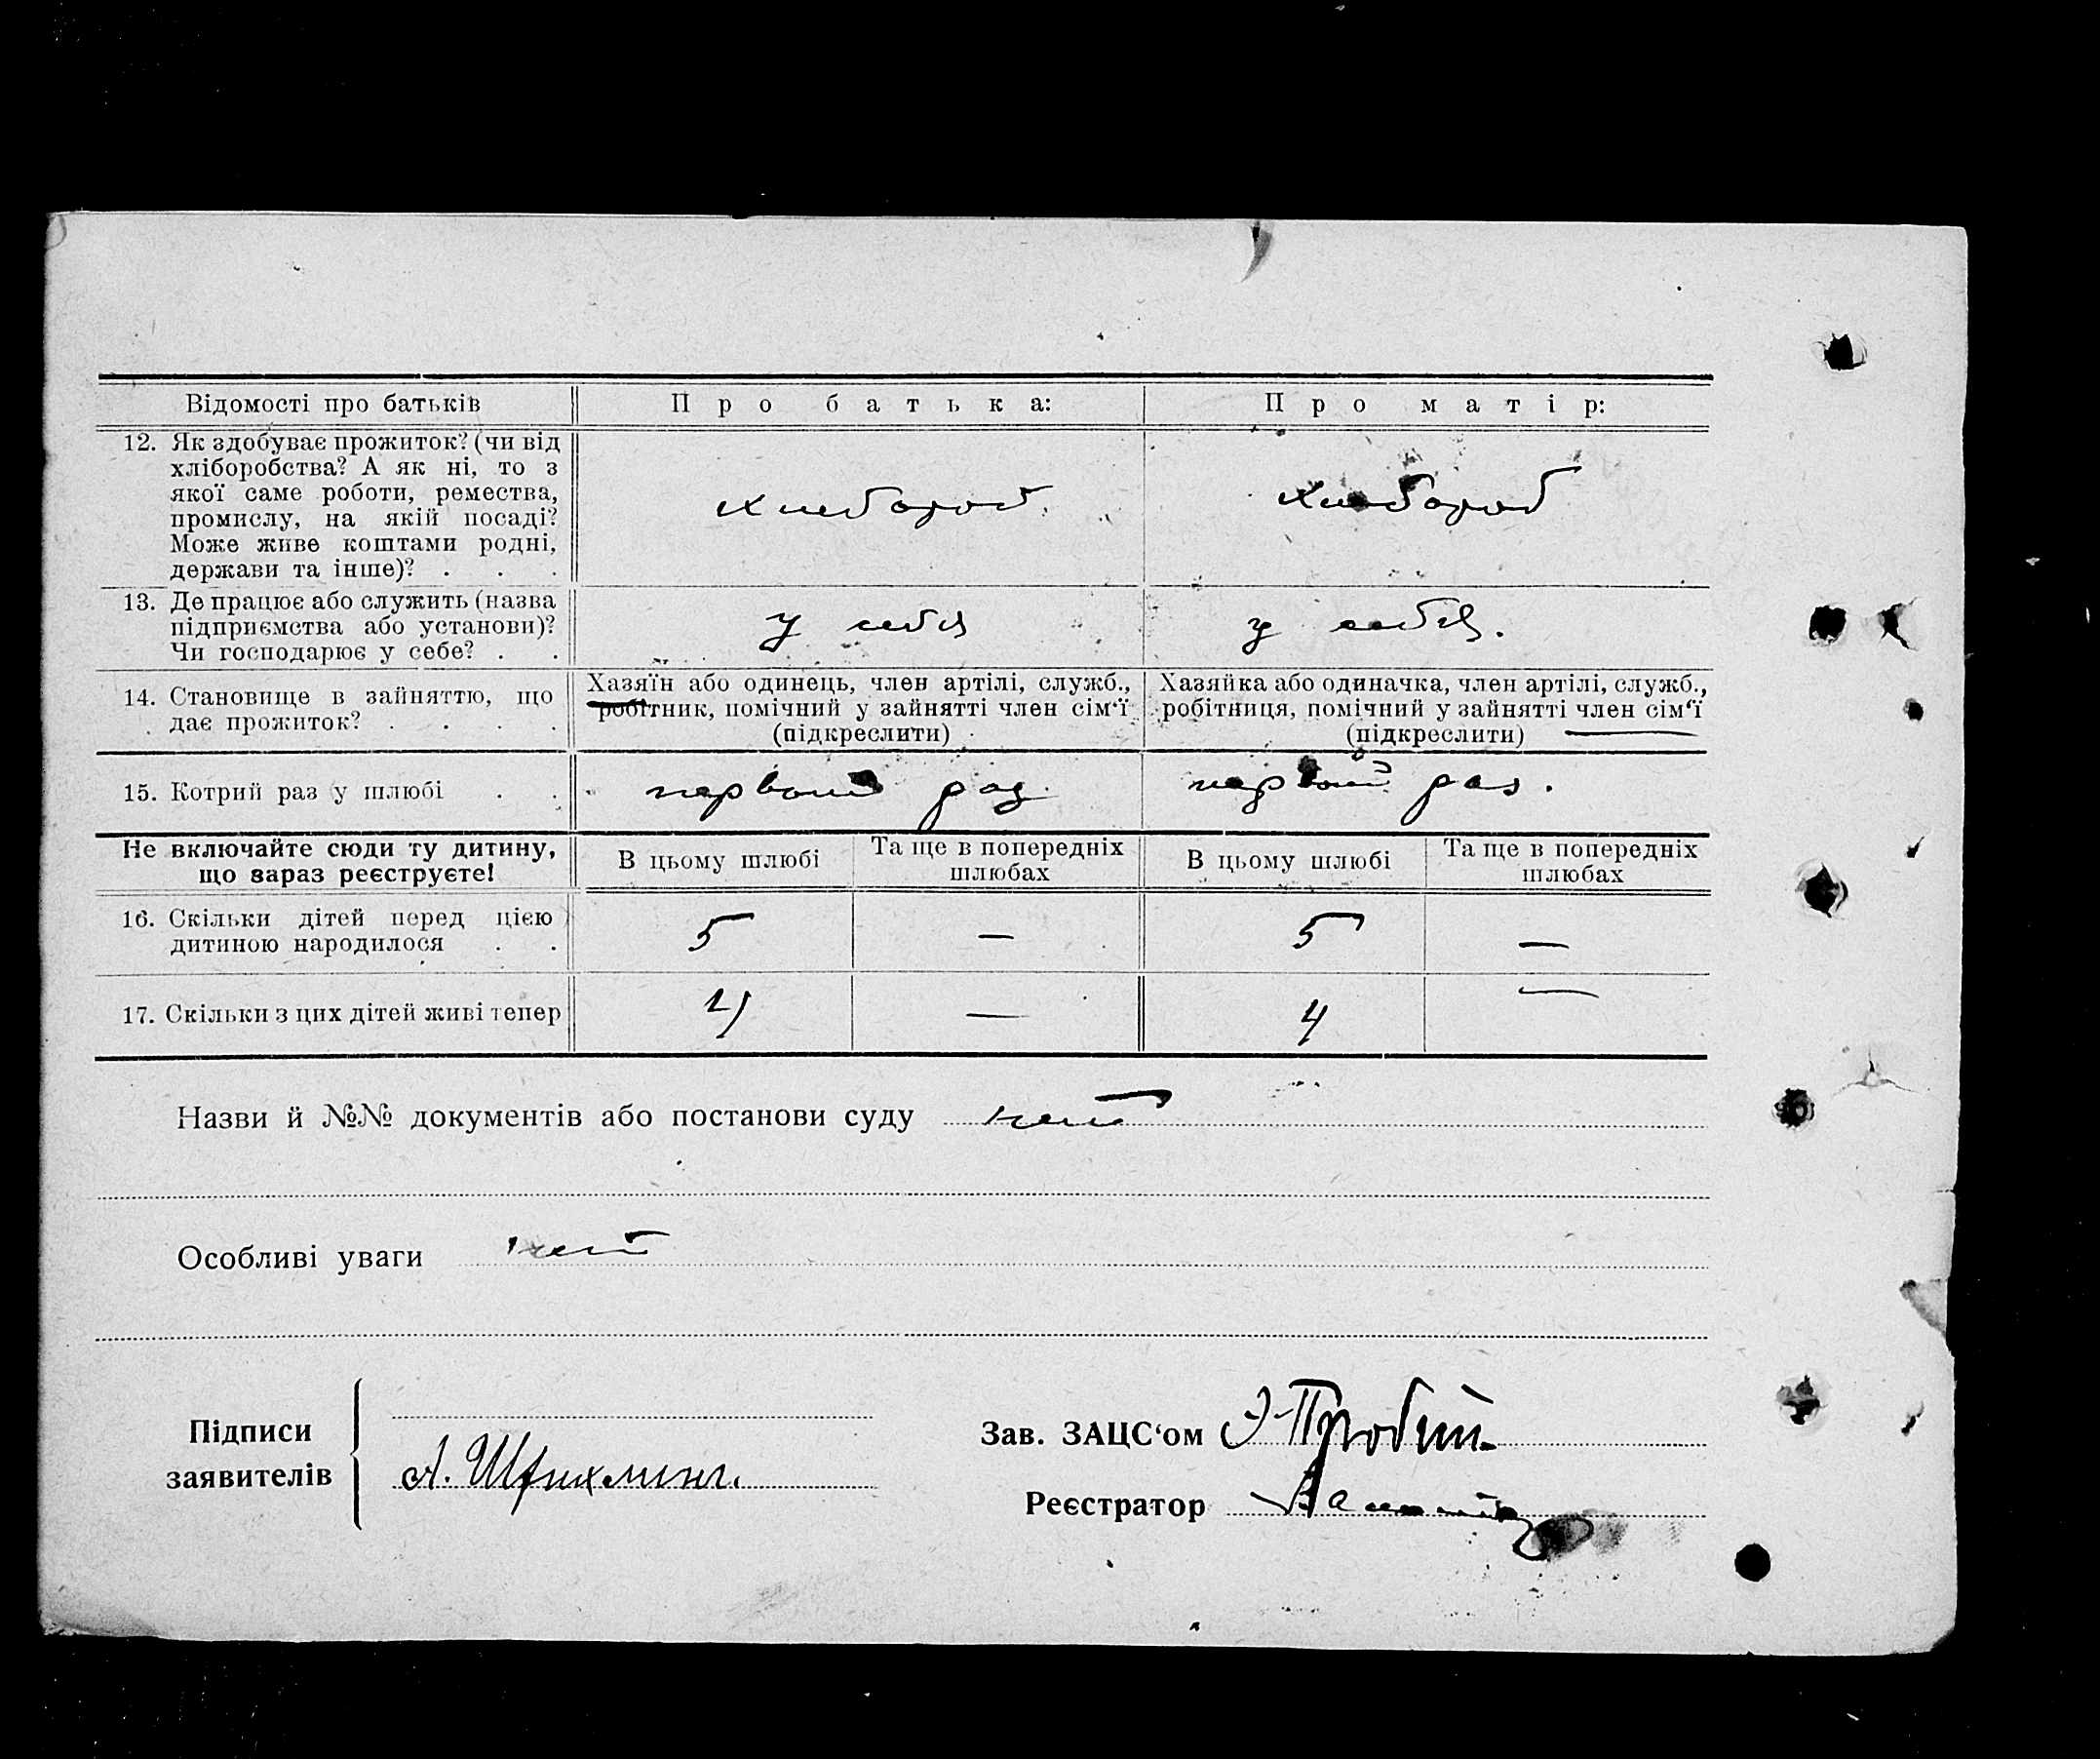 Відомості про батьків
Про батька:
Про матір:
12. Як здобуває прожиток? (чи від
хліборобства? А як ні, то з
якої саме роботи, ремества,
промислу, на якій посаді?
Може живе коштами родні,
держави та інше)? . . .
хлебороб.
хлебороб
13. Де працює або служить (назва
підприємства або установи)?
Чи господарює у себе? . .
у себя
у себя.
14. Становище в зайняттю, що
дає прожиток? . . . .
Хазяїн або одинець, член артілі, служб.,
робітник, помічний у зайнятті член сім'ї
(підкреслити)
Хазяйка або одиначка, член артілі, служб.,
робітниця, помічний у зайнятті член сім'ї
(підкреслити)
15. Котрий раз у шлюбі . .
первый раз
первый раз.
Не включайте сюди ту дитину,
що зараз реєструєте!
В цьому шлюбі
Та ще в попередніх
шлюбах
В цьому шлюбі
Та ще в попередніх
шлюбах
16. Скільки дітей перед цією
дитиною народилося . .
5 — 5 —
17. Скільки з цих дітей живі тепер
4 — 4 —
Назви й №№ документів або постанови суду нет
Особливі уваги нет
Підписи
заявителів
А.
Зав. ЗАЦС'ом
Реєстратор